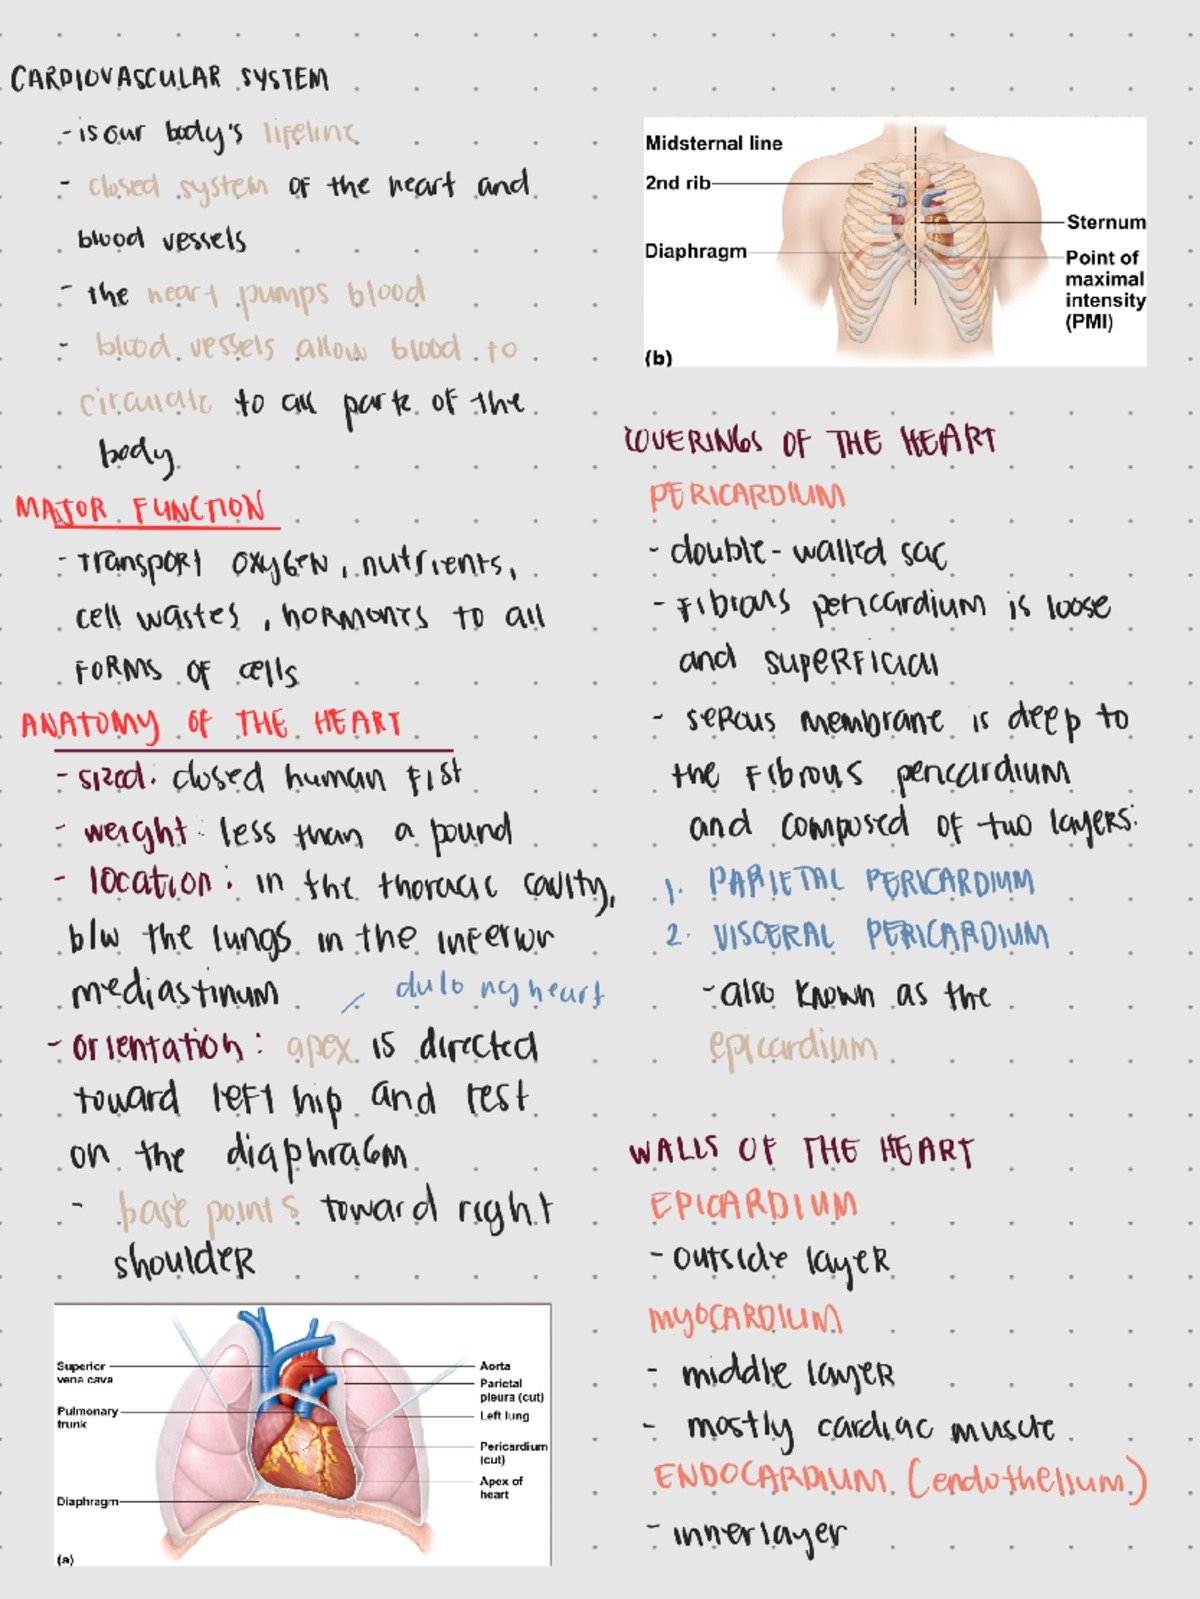 CARDIOVASCULAR SYSTEM
- is our body's lifeline
- closed system of the heart and
blood vessels
- the heart pumps blood
- blood vessels allow blood to
circulate to all parts of the
body
MAJOR FUNCTION
- transport oxygen, nutrients,
cell wastes, hormones to all
forms of cells
ANATOMY OF THE HEART
- sized: closed human fist
- weight: less than a pound
- location: in the thoracic cavity,
b/w the lungs in the inferior
mediastinum
dulo ng heart
- orientation: apex is directed
toward left hip and rest
on the diaphragm
- base points toward right
shoulder
Superior
vena cava
Pulmonary
trunk
Diaphragm
(a)
Aorta
Parietal
pleura (cut)
Left lung
Pericardium
(cut)
Apex of
heart
Midsternal line
2nd rib
Diaphragm
(b)
Sternum
Point of
maximal
intensity
(PMI)
COVERINGS OF THE HEART
PERICARDIUM
- double-walled sac
- Fibrous pericardium is loose
and superficial
- serous membrane is deep to
the fibrous pericardium
and composed of two layers:
1. PARIETAL PERICARDIUM
2. VISCERAL PERICARDIUM
- also known as the
epicardium
WALLS OF THE HEART
EPICARDIUM
- outside layer
MYOCARDIUM
- middle layer
- mostly cardiac muscle
ENDOCARDIUM (endothelium)
- inner layer